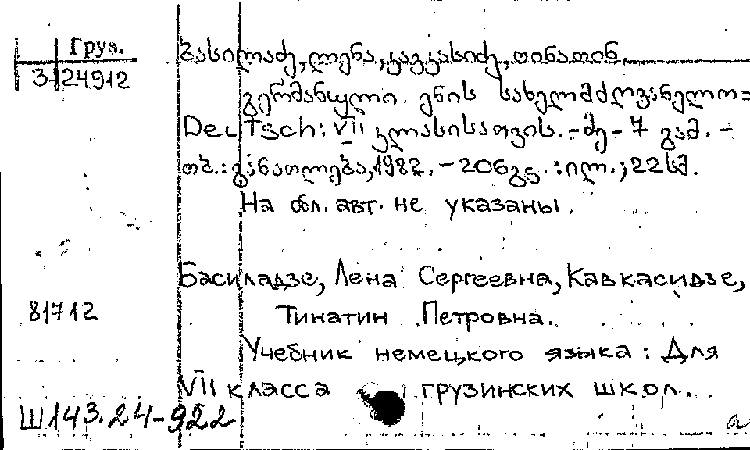 Груз.
3-24912
ბასილაძე, ლენა, კავკასიძე, თინათინ.
გერმანული ენის სახელმძღვანელო=
Deutsch: VII კლასისათვის. - მე-7 გამ. -
თბ.: განათლება, 1982. - 206 გვ. : ილ.; 22 სმ.
На обл. авт. не указаны.
Басиладзе, Лена Сергеевна, Кавкасидзе,
81712
Тинатин Петровна.
Учебник немецкого языка: Для
VII класса грузинских школ.
Ш143.24-922